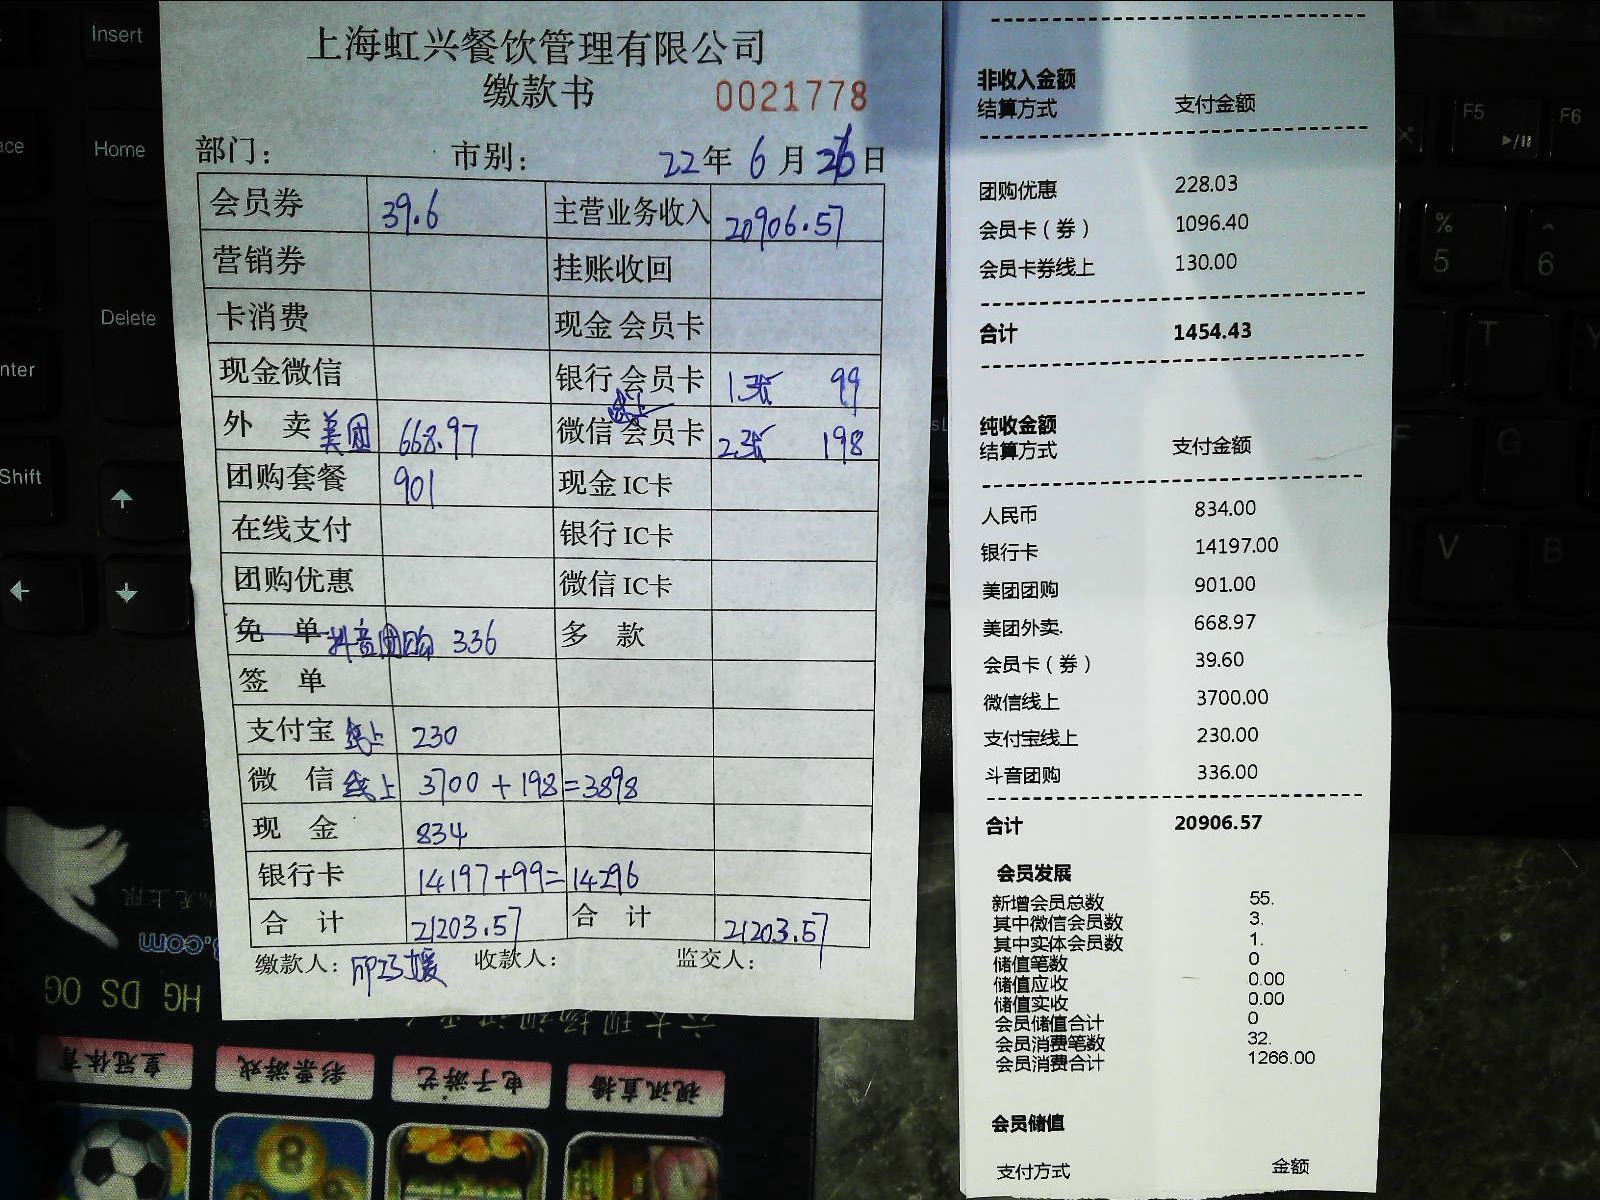 上海虹兴餐饮管理有限公司
缴款书 0021778
部门： 市别： 22年 6月 26日
会员券 39.6 主营业务收入 20906.57
营销券 挂账收回
卡消费 现金 会员卡
现金微信 银行 会员卡 1张 99
外 卖 美团 668.97 微信 线上 会员卡 2张 198
团购套餐 901 现金 IC卡
在线支付 银行 IC卡
团购优惠 微信 IC卡
免 单 抖音团购 336 多 款
签 单
支付宝 线上 230
微 信 线上 3700 + 198 = 3898
现 金 834
银行卡 14197+99= 14296
合 计 21203.57 合 计 21203.57
缴款人： 收款人： 监交人：
非收入金额
结算方式 支付金额
团购优惠 228.03
会员卡（券） 1096.40
会员卡券线上 130.00
合计 1454.43
纯收金额
结算方式 支付金额
人民币 834.00
银行卡 14197.00
美团团购 901.00
美团外卖. 668.97
会员卡（券） 39.60
微信线上 3700.00
支付宝线上 230.00
斗音团购 336.00
合计 20906.57
会员发展
新增会员总数 55.
其中微信会员数 3.
其中实体会员数 1.
储值笔数 0
储值应收 0.00
储值实收 0.00
会员储值合计 0
会员消费笔数 32.
会员消费合计 1266.00
会员储值
支付方式 金额
Insert
Home
Delete
Shift
F5
F6
%
5
6
T
G
V
B
HG DS OG
皇冠体育 彩票游戏 电子游艺 视讯直播